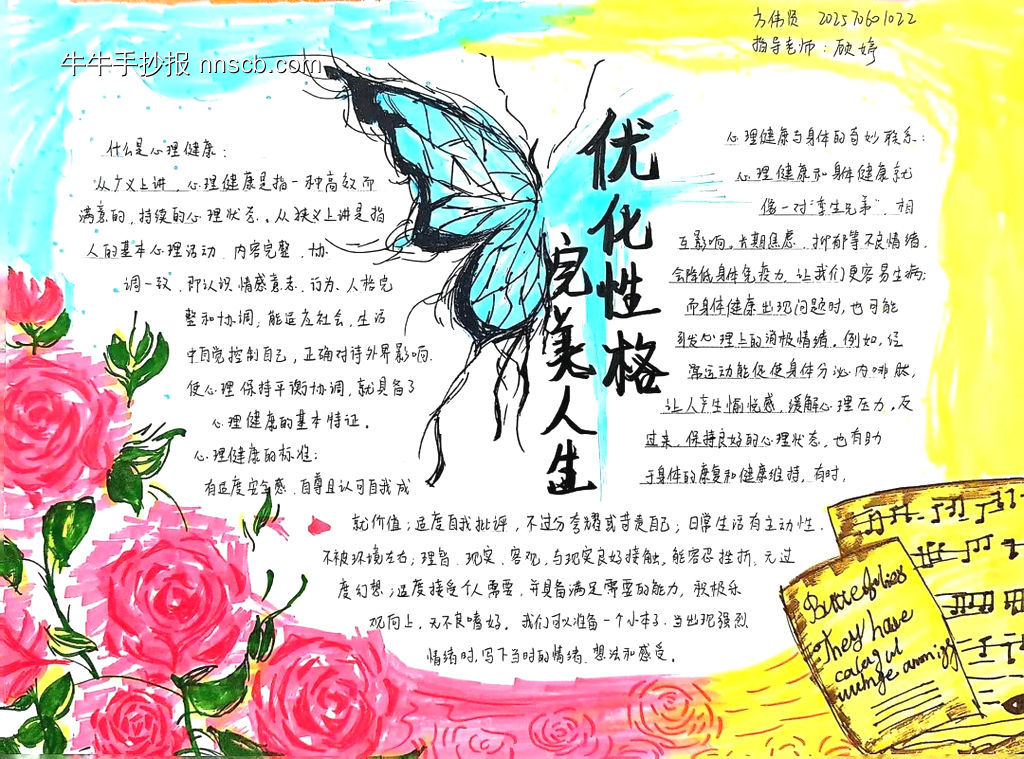 方伟贤 202570601022
指导老师：顾婷
牛牛手抄报 nnscb.com
优化性格
完美人生
什么是心理健康：
从广义上讲，心理健康是指一种高效而
满意的，持续的心理状态。从狭义上讲是指
人的基本心理活动、内容完整、协
调一致，即认识、情感、意志、行为、人格完
整和协调，能适应社会，生活
中自觉控制自己，正确对待外界影响，
使心理保持平衡协调，就具备了
心理健康的基本特征。
心理健康的标准：
有适度安全感，自尊且认可自我成
就价值；适度自我批评，不过分夸耀或苛责自己；日常生活有主动性，
不被环境左右；理智、现实、客观，与现实良好接触，能容忍挫折，无过
度幻想；适度接受个人需要，并具备满足需要的能力，积极乐
观向上，无不良嗜好。我们可以准备一个小本子，当出现强烈
情绪时，写下当时的情绪、想法和感受。
心理健康与身体的奇妙联系：
心理健康和身体健康就
像一对“孪生兄弟”，相
互影响。长期焦虑、抑郁等不良情绪，
会降低身体免疫力，让我们更容易生病；
而身体健康出现问题时，也可能
引发心理上的消极情绪。例如，经
常运动能促使身体分泌内啡肽，
让人产生愉悦感，缓解心理压力。反
过来，保持良好的心理状态，也有助
于身体的康复和健康维持，有时，
Butterflies
they have